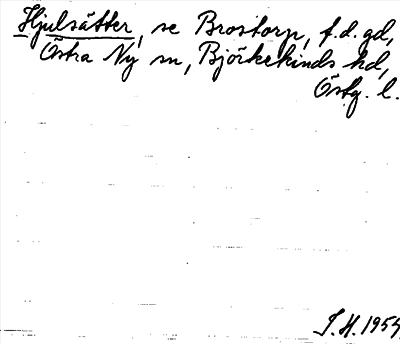 Hjulsätter, se Brostorp, f.d. gd,
Östra Ny sn, Björkekinds hd,
Östg. l.
J.H. 1954